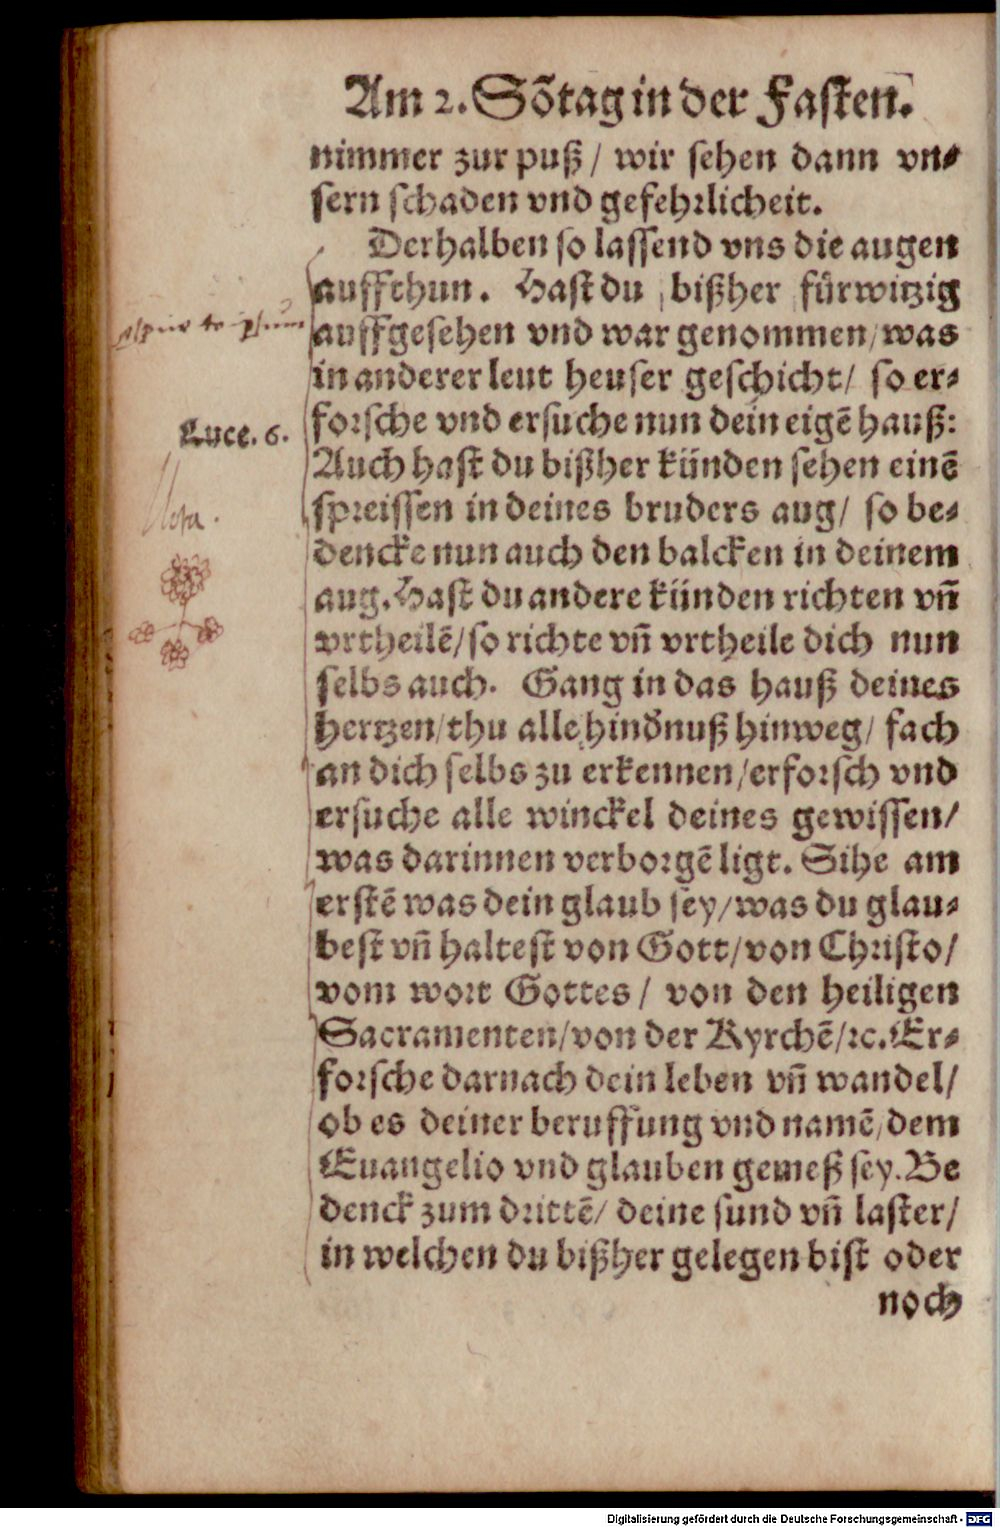 Am 2. Sõtag in der Fasten.
nimmer zur puß / wir sehen dann vn⸗
sern schaden vnd gefehrlicheit.
Derhalben so lassend vns die augen
auffthun. Hast du bißher fürwitzig
auffgesehen vnd war genommen / was
in anderer leut heuser geschicht / so er⸗
forsche vnd ersuche nun dein eigẽ hauß:
Luce. 6.
Auch hast du bißher künden sehen einẽ
spreissen in deines bruders aug / so be⸗
Nota.
dencke nun auch den balcken in deinem
aug. Hast du andere künden richten vñ
vrtheilẽ / so richte vñ vrtheile dich nun
selbs auch. Gang in das hauß deines
hertzen / thu alle hindnuß hinweg / fach
an dich selbs zu erkennen / erforsch vnd
ersuche alle winckel deines gewissen /
was darinnen verborgẽ ligt. Sihe am
erstẽ was dein glaub sey / was du glau⸗
best vñ haltest von Gott / von Christo /
vom wort Gottes / von den heiligen
Sacramenten / von der Kyrchẽ / ꝛc. Er⸗
forsche darnach dein leben vñ wandel /
ob es deiner beruffung vnd namẽ / dem
Euangelio vnd glauben gemeß sey. Be
denck zum drittẽ / deine sund vñ laster /
in welchen du bißher gelegen bist oder
noch
Digitalisierung gefördert durch die Deutsche Forschungsgemeinschaft - DFG